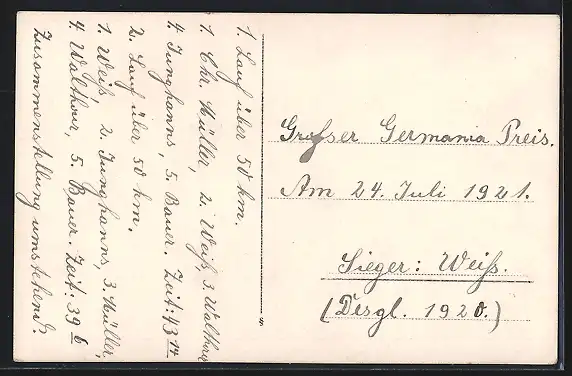 1. Lauf über 50 km.
1. Chr. Müller, 2. Weiß, 3. Walthour
4. Junghanns, 5. Bauer. Zeit: 43 14
2. Lauf über 50 km.
1. Weiß, 2. Junghanns, 3. Müller,
4. Walthour, 5. Bauer. Zeit: 39 6
Zusammenstellung umstehend?
Großer Germania Preis.
Am 24. Juli 1921.
Sieger: Weiß.
(Desgl. 1920.)